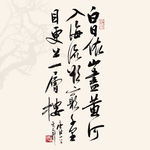 白日依山盡黄河
入海流欲窮千里
目更上一層樓